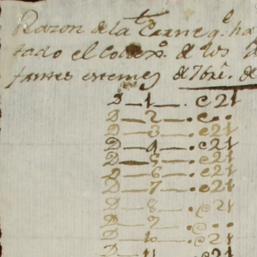 Razon de la Carne q.e ha
tado el Colex.o de los
fantes en este mes de 7bre. de
D_1_. c21
D_2_. c..
D_3_. c21
D_4_. c21
D_5_. c21
D_6_. c21
D_7_. c21
D_8_. c21
D_9_. c..
D_10_. c21
D_11_. c21